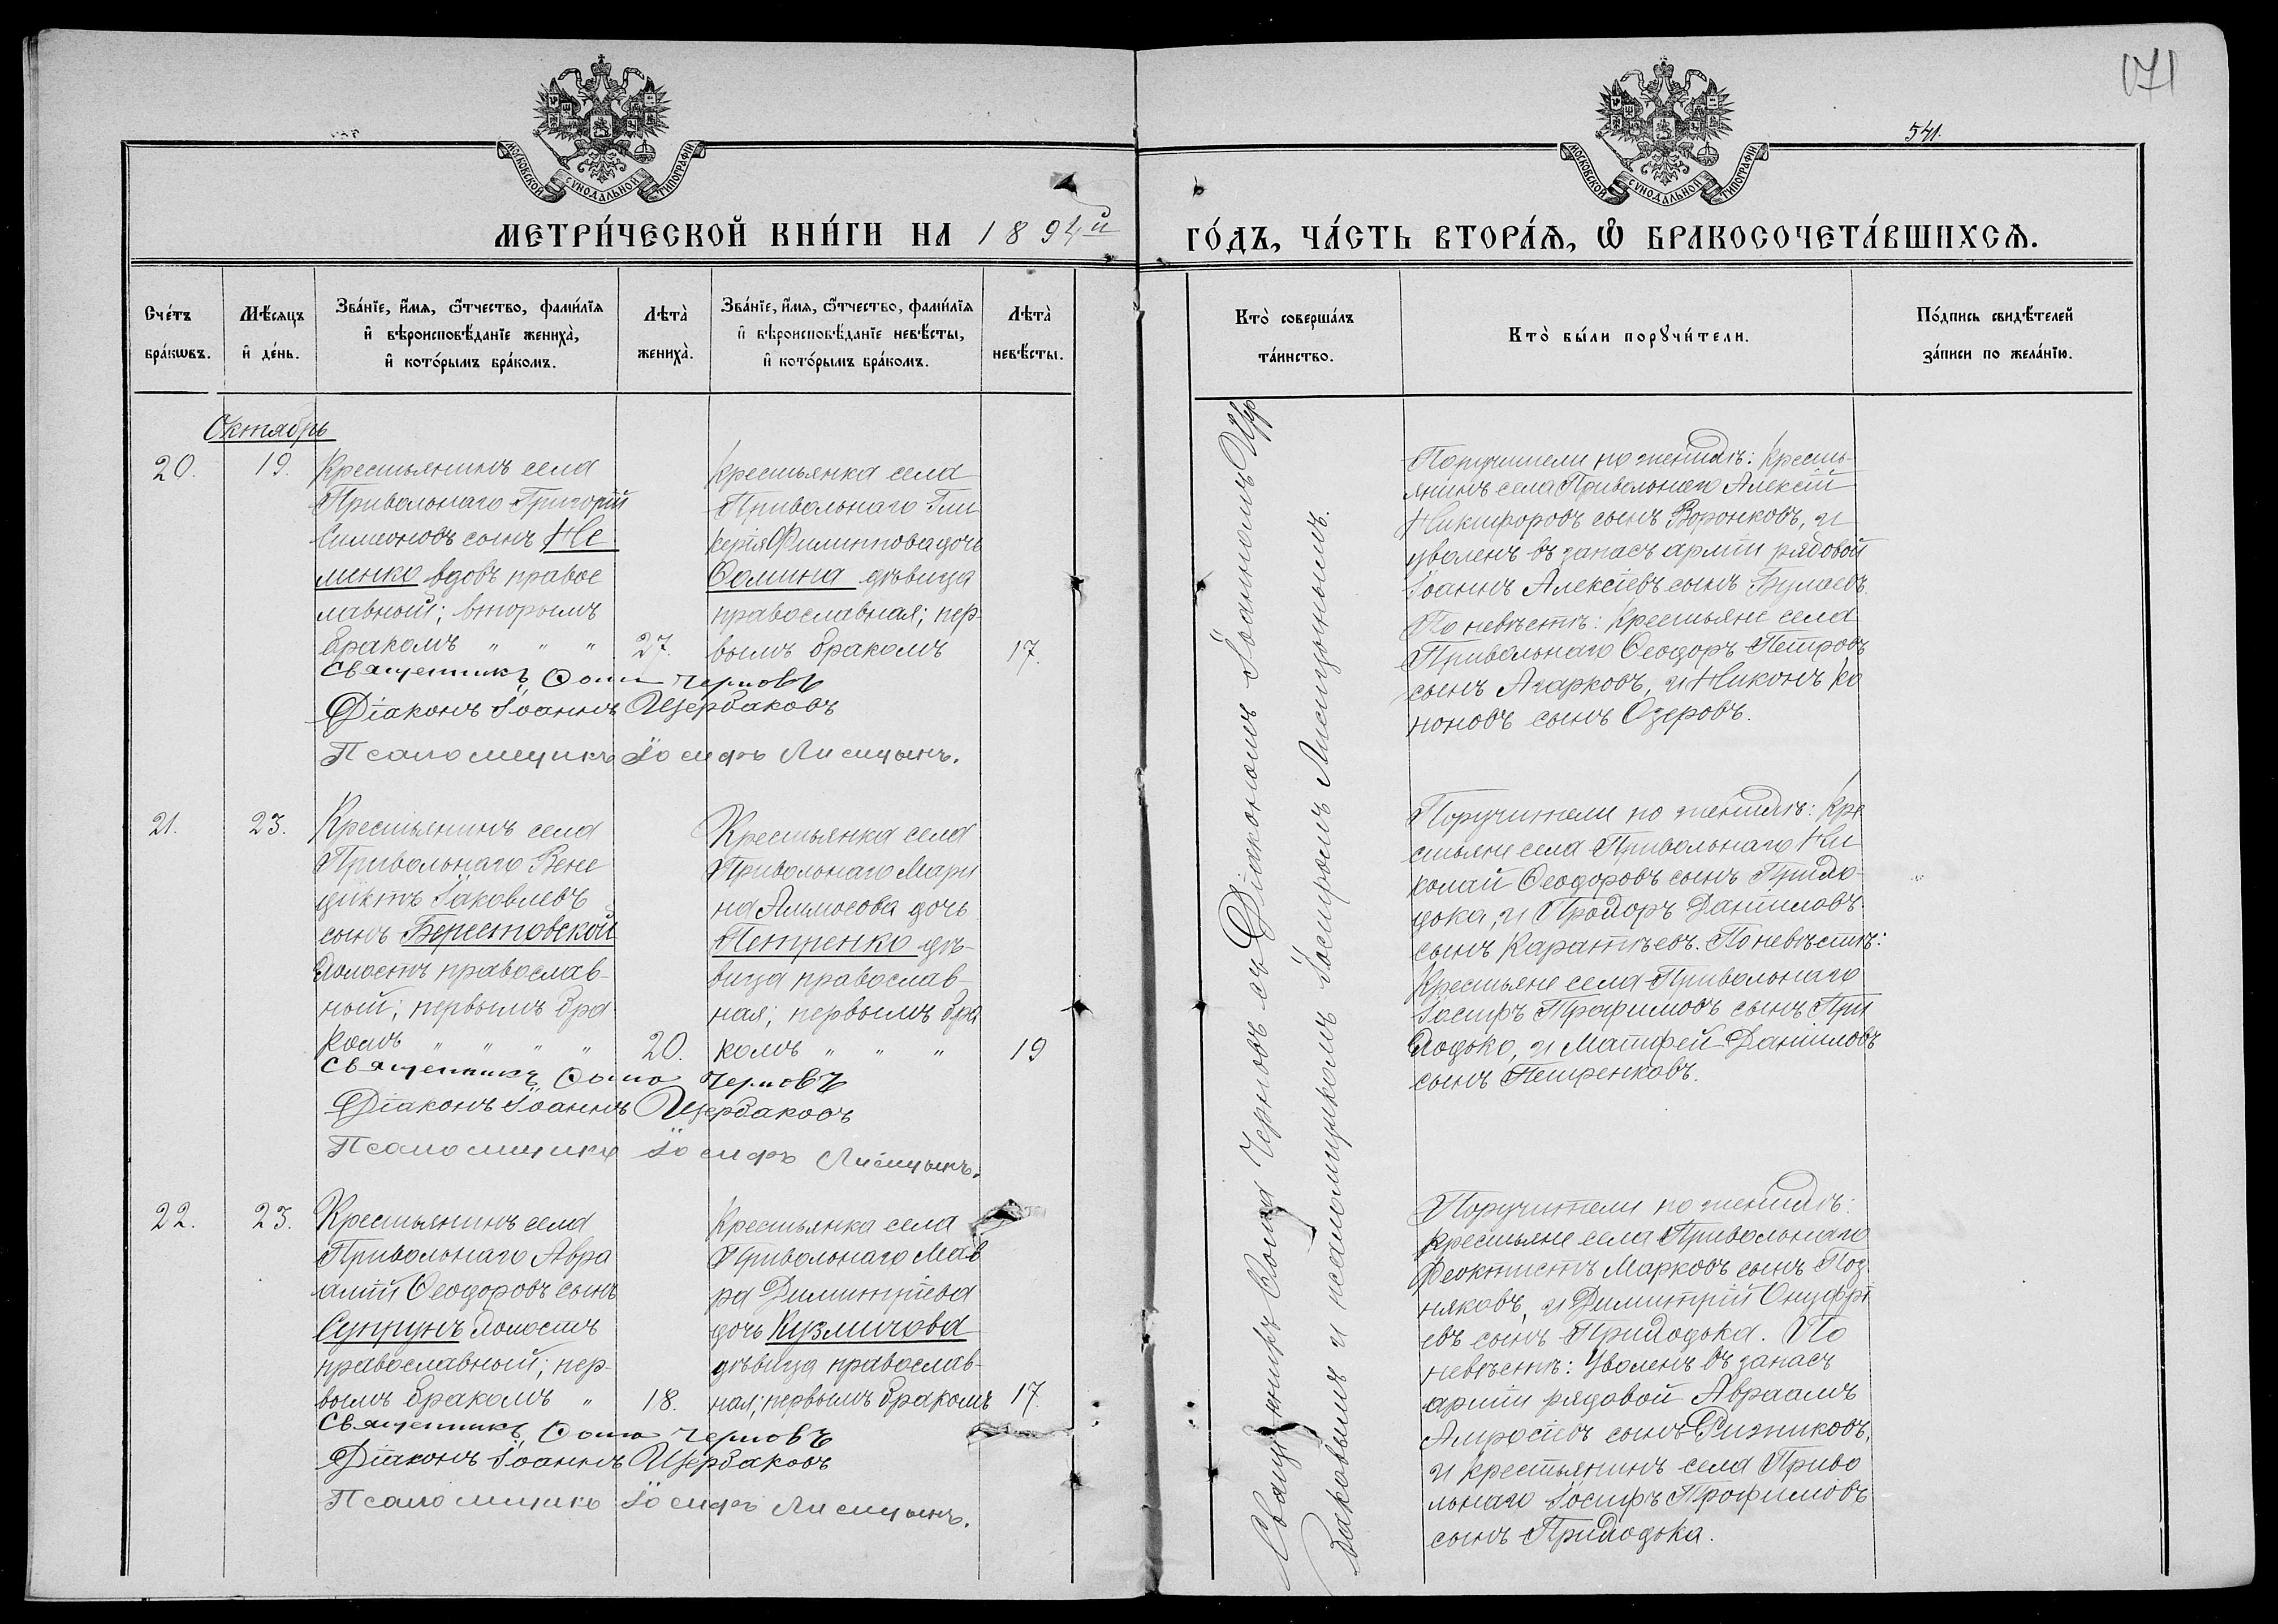 171
541.
МОСКОВСКОЙ СУНОДАЛЬНОЙ ТИПОГРАФІИ
МОСКОВСКОЙ СУНОДАЛЬНОЙ ТИПОГРАФІИ
МЕТРИ́ЧЕСКОЙ КНИ́ГИ НА 1894й
ГО́ДЪ, ЧА́СТЬ ВТОРА́Ѧ, Ѡ҆ БРАКОСОЧЕТА́ВШИХСѦ.
Сче́тъ
бра́кѡвъ.
Мѣ́сяцъ
и҆ де́нь.
Зва́нїе, и҆́мя, ѻ҆́тчество, фами́лїя
и҆ вѣроисповѣ́данїе жениха̀,
и҆ кото́рымъ бра́комъ.
Лѣта̀
жениха̀.
Зва́нїе, и҆́мя, ѻ҆́тчество, фами́лїя
и҆ вѣроисповѣ́данїе невѣ́сты,
и҆ кото́рымъ бра́комъ.
Лѣта̀
невѣ́сты.
Кто̀ соверша́лъ
та́инство.
Кто̀ бы́ли порꙋчи́тели.
По́дпись свидѣ́телей
за́писи по жела́нїю.
Октябрь
20.
19.
Крестьянинъ села
Привольнаго Григорій
Симеоновъ сынъ Не
менко вдовъ правос
лавный; вторымъ
бракомъ " " "
27.
Крестьянка села
Привольнаго Гли
керія Филиппова дочь
Ѳомина дѣвица
православная; пер-
вымъ бракомъ
17.
Священникъ Ѳома Черновъ
Діаконъ Іоаннъ Щербаковъ
Псаломщикъ Іосифъ Лисицынъ.
21.
23.
Крестьянинъ села
Привольнаго Вене
диктъ Іаковлевъ
сынъ Берестовской
холостъ православ-
ный; первымъ бра
комъ " " " "
20.
Крестьянка села
Привольнаго Мари
на
дочь
Петренко дѣ-
вица православ-
ная; первымъ бра
комъ " " "
19
Священникъ Ѳома Черновъ
Діаконъ Іоаннъ Щербаковъ
Псаломщикъ Іосифъ Лисицынъ.
22.
23.
Крестьянинъ села
Привольнаго Авра
амій Ѳеодоровъ сынъ
Супрунъ холостъ
православный; пер-
вымъ бракомъ "
18.
Крестьянка села
Привольнаго Мав
ра Димитріева
дочь Кузмичова
дѣвица православ-
ная; первымъ бракомъ
17.
Священникъ Ѳома Черновъ
Діаконъ Іоаннъ Щербаковъ
Псаломщикъ Іосифъ Лисицынъ.
Священникъ Ѳома Черновъ съ Діакономъ Іоанномъ Щер
баковымъ и псаломщикомъ Іосифомъ Лисицынымъ.
Поручители по женихѣ: Кресть-
янинъ села Привольнаго Алексій
Никифоровъ сынъ Воронковъ, и
уволенъ въ запасъ арміи рядовой
Іоаннъ Алексіевъ сынъ Булаевъ.
По невѣстѣ: Крестьяне села
Привольнаго Ѳеодоръ Петровъ
сынъ Агарковъ, и Никонъ Ко
ноновъ сынъ Озеровъ.
Поручители по женихѣ: Кре
стьяне села Привольнаго Ни
колай Ѳеодоровъ сынъ Прихо-
дька, и Прохоръ Даніиловъ
сынъ Каратѣевъ. По невѣстѣ:
Крестьяне села Привольнаго
Іосифъ Трофимовъ сынъ При
ходько, и Матфей Даніиловъ
сынъ Петренковъ.
Поручители по женихѣ:
крестьяне села Привольнаго
Феоктистъ Марковъ сынъ Поз
няковъ, и Димитрій Онуфрі
евъ сынъ Приходька. По
невѣстѣ: Уволенъ въ запасъ
арміи рядовой Авраамъ
Амросіевъ сынъ Ризниковъ,
и крестьянинъ села Приво
льнаго Іосифъ Трофимовъ
сынъ Приходька.